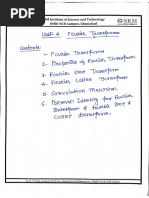 SRM Institute of Science and Technology
Delhi-NCR Campus, Ghaziabad
SRM
Unit-4 Fourier Transform
Contents:
1- Fourier Transform
2- Properties of Fourier Transform
3- Fourier Sine Transform
4- Fourier Cosine Transform
5- Convolution Theorem
6- Parseval Identity for Fourier
Transform & Fourier sine &
cosine transform.